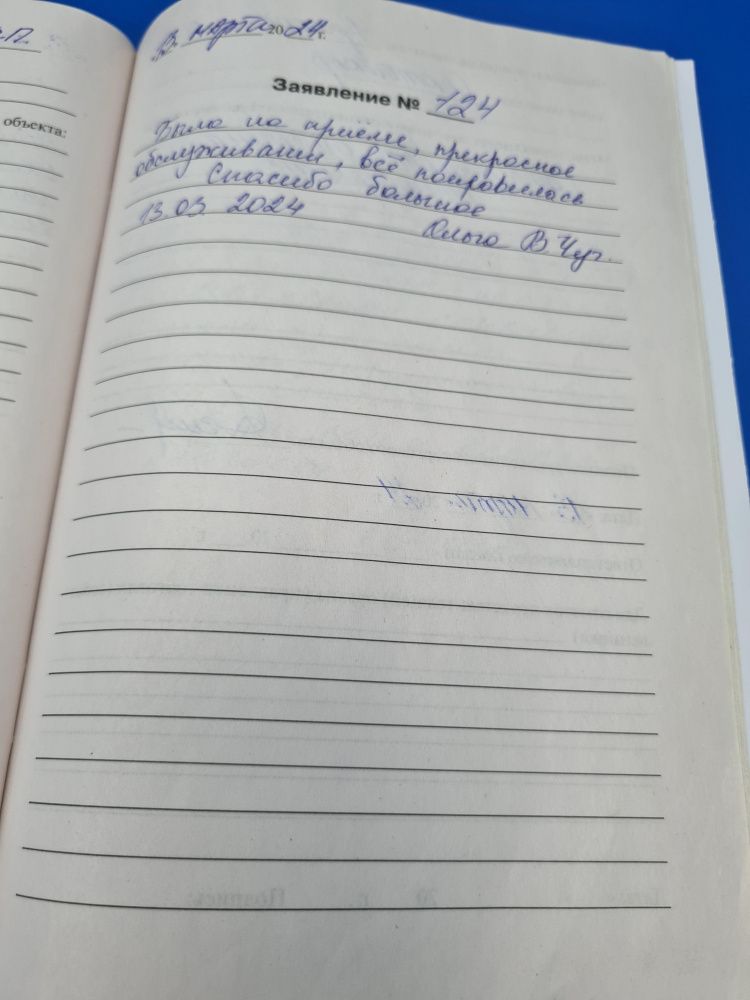 13 марта 2024 г.
Заявление № 124
Была на приёме, прекрасное
обслуживании, всё понравилась
Спасибо большое
13 03 2024
Ольга В. Чуг.
объекта: